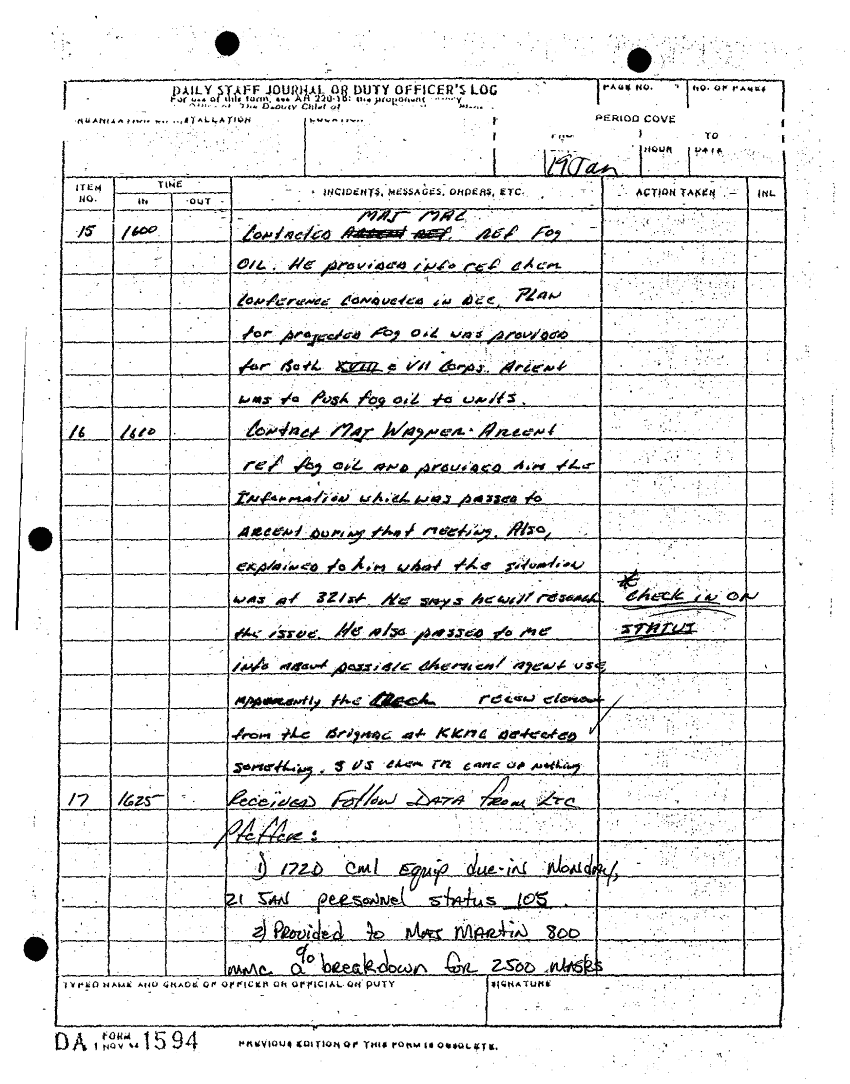 DAILY STAFF JOURNAL OR DUTY OFFICER'S LOG
For use of this form, see AR 220-15; the proponent
The Deputy Chief of
PAGE NO.
NO. OF PAGES
LOCATION
PERIOD COVE
TO
HOUR
DATE
19 Jan
ITEM NO.
TIME
IN
OUT
INCIDENTS, MESSAGES, ORDERS, ETC.
ACTION TAKEN
INL
MAJ MAL
15 1600 Contacted Ref Fog
OIL. He provided info ref chem
Conference conducted in Dec. Plan
for projected Fog oil was provided
for Both XVIII & VII Corps. Arcent
was to Push fog oil to units.
16 1610 Contact Maj Wagner - Arcent
ref fog oil and provided him the
Information which was passed to
ARCENT During that meeting. Also,
explained to him what the situation
was at 321st. He says he will research
* Check in on
the issue. He also passed to me
STATUS
info about possible chemical agent use,
apparently the recon element
from the Brignac at KKMC Detected
something. 3 US chem Tm came up nothing
17 1625 Received Follow DATA from LTC
Pfeffer:
1) 1720 cml Equip due-in Monday,
21 JAN personnel status 105
2) Provided to Maj Martin 800
MMC a % breakdown for 2500 masks
TYPED NAME AND GRADE OF OFFICER OR OFFICIAL ON DUTY
SIGNATURE
DA FORM 1 NOV 1594
PREVIOUS EDITION OF THIS FORM IS OBSOLETE.